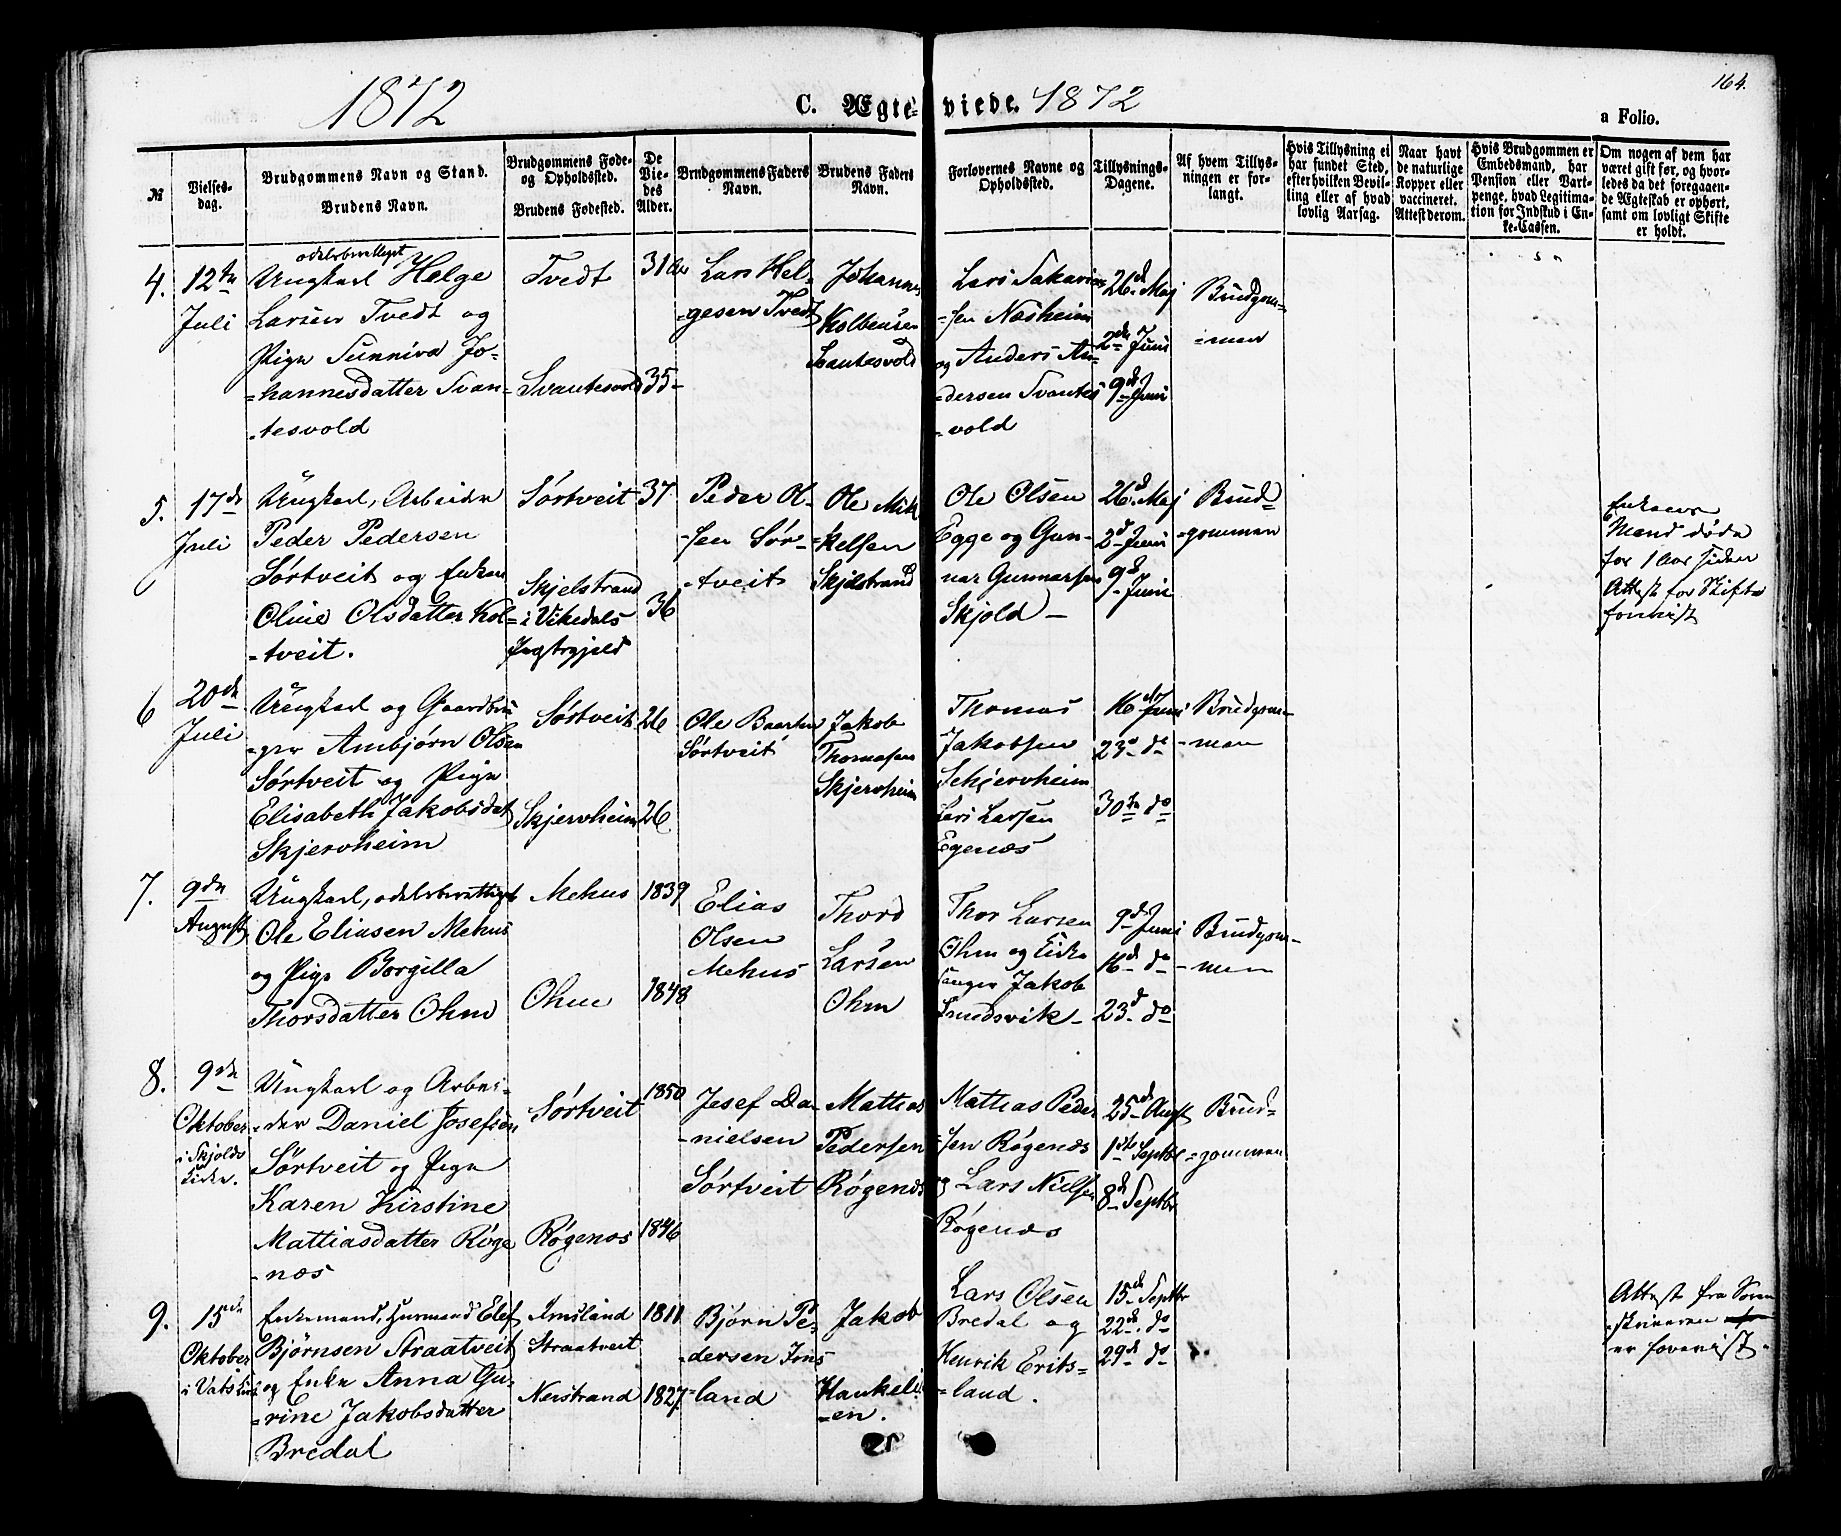 164.
1872
C. Ægte- viede. 1872
a Folio.
№
Vielses-
dag.
Brudgommens Navn og Stand.
Brudens Navn.
Brudgommens Føde-
og Opholdssted.
Brudens Fødested.
De
Vie-
des
Alder.
Brudgommens Faders
Navn.
Brudens Faders
Navn.
Forlovernes Navne og
Opholdssted.
Tillysnings-
Dagene.
Af hvem Tillys-
ningen er for-
langt.
Hvis Tillysning ei
har fundet Sted,
efter hvilken Bevil-
ling eller af hvad
lovlig Aarsag.
Naar havt
de naturlige
Kopper eller
vaccineret.
Attest derom.
Hvis Brudgommen er
Embedsmand, har
Pension eller Vart-
penge, hvad Legitima-
tion for Indskud i En-
ke-Cassen.
Om nogen af dem har
været gift før, og hvor-
ledes da det foregaaen-
de Ægteskab er ophørt,
samt om lovligt Skifte
er holdt.
4.
12te
Juli
odelsberettiget
Ungkarl Helge
Larsen Tvedt og
Pige Sunniva Jo-
-hannesdatter Svan-
-tesvold
Tvedt
Svantesvold
31 Aar
35-
Lars Hel-
-gesen Tvedt
Johannes
Kolbensen
Svantesvold
Lars Sakarias-
-sen Næsheim
og Anders An-
-dersen Svantes
-vold
26d Maj
2den Juni
9d Juni
Brudgom-
-men
5.
17de
Juli
Ungkarl, Arbeider
Peder Pedersen
Sørtveit og Enken
Oline Olsdatter Kol-
-tveit.
Sørtveit
Skjelstrand
i Vikedals
Præstegjeld
37
36
Peder Ol-
-sen Sør-
-tveit
Ole Mik
-kelsen
Skjelstrand
Ole Olsen
Egge og Gun-
nar Gunnarsen
Skjold -
26d Maj
2d Juni
9d Juni
Brud-
-gommen
Enkens
Mand døde
for 1 Aar siden
Attest for Skifte
forevist
6
20de
Juli
Ungkarl og Gaardbru
-ger Ambjørn Olsen
Sørtveit og Pige
Elisabeth Jakobsdat
Skjervheim
Sørtveit
Skjervheim
26
26
Ole Baarsen
Sørtveit
Jakob
Thomasen
Skjervheim
Thomas
Jakobsen
Schjervheim
Lars Larsen
Egenæs
16de Juni
23d do
30te do
Brudgom-
-men
7.
9de
August
Ungkarl, odelsberettiget
Ole Eliasen Mehus
og Pige Borgilla
Thorsdatter Ohm
Mehus
Ohm
1839
1848
Elias
Olsen
Mehus
Thord
Larsen
Ohm
Thor Larsen
Ohm og Kirke
sanger Jakob
Smedsvik -
9d Juni
16d do
23d do
Brudgom-
-men
8.
9de
Oktober
i Skjolds
Kirke.
Ungkarl og Arbei-
-der Daniel Josefsen
Sørtveit og Pige
Karen Kirstine
Mattiasdatter Røge
-næs
Sørtveit
Røgenæs
1850
1846
Josef Da-
-nielsen
Sørtveit
Mattias
Pedersen
Røgenæs
Mattias Peder
-sen Røgenæs
og Lars Nielsen
Røgenæs
25d Augst
1ste Septbr
8d Septbr
Brud-
-gommen
9.
15de
Oktober
i Vats Kirke
Enkemand, Huusmand Elef
Bjørnsen Straatveit
og Enke Anna Gu-
-rine Jakobsdatter
Bredal
Imsland
Straatveit
Nerstrand
1811
1827
Bjørn Pe-
-dersen Ims
-land
Jakob
Haukeli
-en.
Lars Olsen
Bredal og
Henrik Erits-
-land.
15de Septbr
22de do
29d do
Attest fra Soren
-skriveren
er forevist.